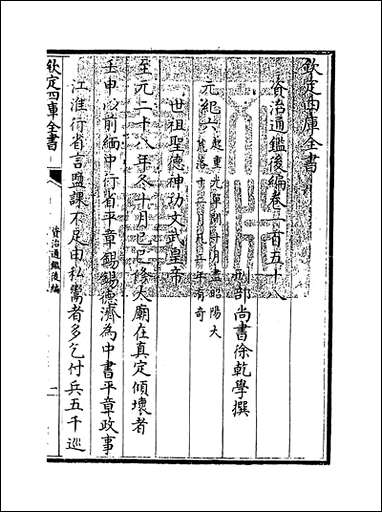 欽定四庫全書
資治通鑑後編卷一百五十八
刑部尚書徐乾學撰
元紀六
起重光單閼十月盡昭陽大
荒落十二月凡二年有奇
世祖聖德神功文武皇帝
至元二十八年冬十月己巳修太廟在真定傾壞者
壬申以前緬中行省平章錫錫德濟為中書平章政事
江淮行省言鹽課不足由私鬻者多乞付兵五千巡
欽定四庫全書
資治通鑑後編
一